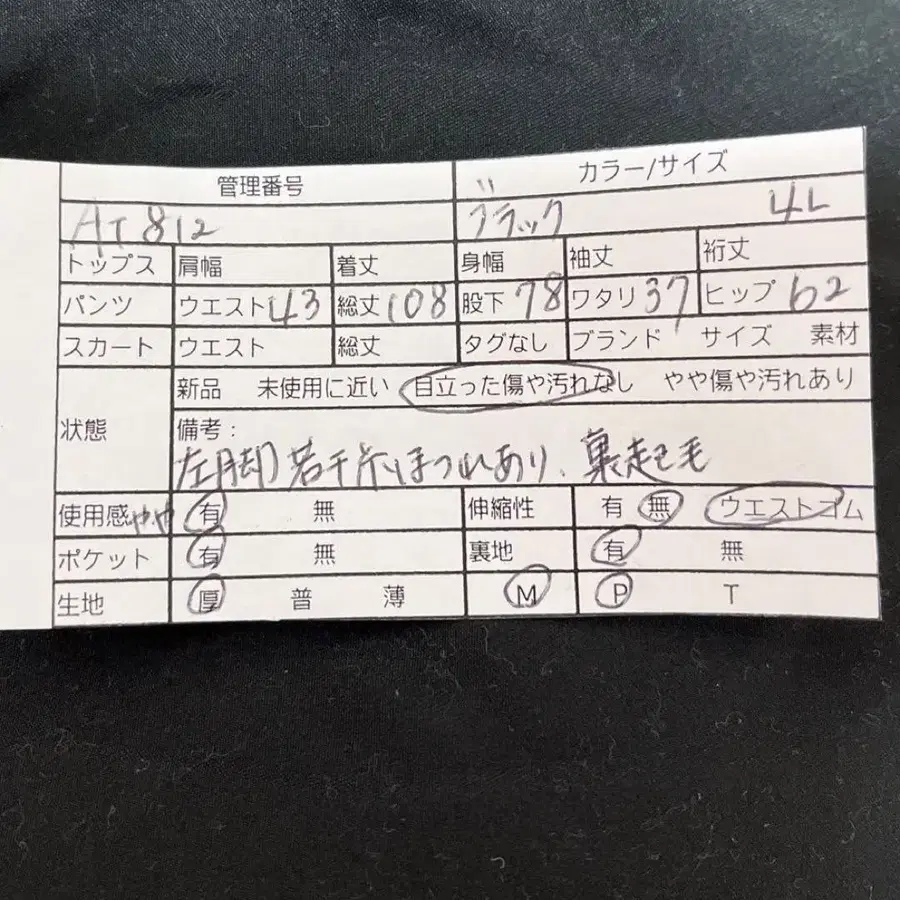 管理番号 カラー/サイズ
AT812 ブラック 4L
トップス 肩幅 着丈 身幅 袖丈 裄丈
パンツ ウエスト43 総丈108 股下78 ワタリ37 ヒップ62
スカート ウエスト 総丈 タグなし ブランド サイズ 素材
状態 新品 未使用に近い 目立った傷や汚れなし やや傷や汚れあり
備考:
左脚若干糸ほつれあり、裏起毛
使用感 やや 有 無 伸縮性 有 無 ウエストゴム
ポケット 有 無 裏地 有 無
生地 厚 普 薄 M P T